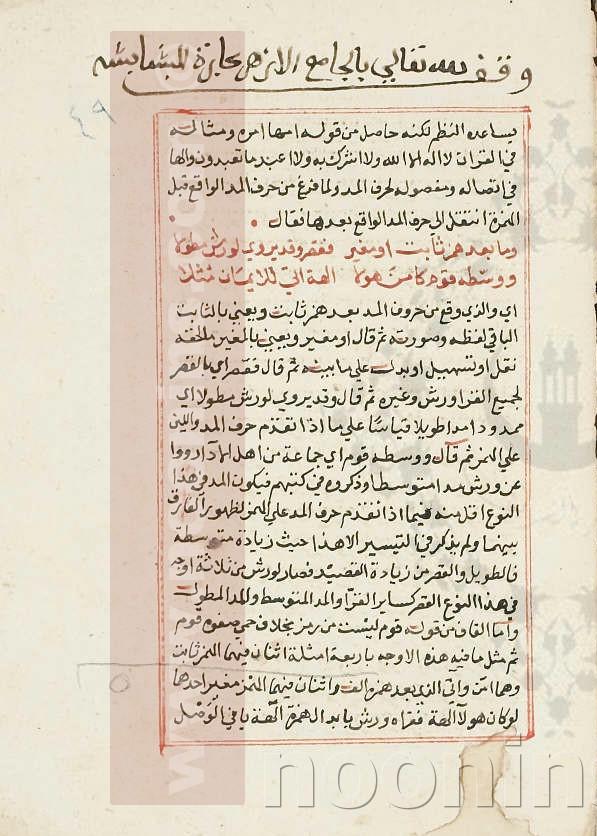 وقف لله تعالى بالجامع الازهر
٤٩
يساعده النظم لكنه حاصل من قوله امها امره ومثاله
في القران لا اله الا الله ولا اشرك به ولا اعبد ما تعبدون والها
في اتصاله ومفصوله لحرف المد ولما فرغ من حرف المد الواقع قبل
الهمزة انتقل الي حرف المد الواقع بعدها فقال
وما بعد همز ثابت او مغير فقصر وقد يروي لورش مطولا
ووسطه قوم كامن هولا الهة اتي للايمان مثلا
اي والذي وقع من حروف المد بعد همز ثابت ويعني بالثابت
الباقي لفظه وصورته ثم قال او مغير ويعني بالمغير ما لحقه
نقل او تسهيل او بدل علي ما بينه ثم قال فقصر اي بالقصر
لجميع القرا ورش وغيره ثم قال وقد يروي لورش مطولا اي
ممدودا مدا طويلا قياسا علي ما اذا تقدم حرف المد واللين
علي الهمز ثم قال ووسطه قوم اي جماعة من اهل الادا رووا
عن ورش مدا متوسطا وذكروه في كتبهم فيكون المد في هذا
النوع اقل منه فيما اذا تقدم حرف المد علي الهمز لظهور الفارق
بينهما ولم يذكر في التيسير الا هذا حيث زيادة متوسطة
فالطويل والقصر من زيادة القصيد فصار لورش من ثلاثة اوجه
في هذا النوع القصر كساير القرا والمد المتوسط والمد المطول
واما القاف من قوله قوم ليست من رمز بخلاف حمي صفوه قوم
ثم مثل ما فيه هذه الاوجه باربعة امثلة اثنان فيهما الهمز ثابت
وهما امن واتي الذي بعد همزه الف واثنان فيهما الهمز مغير احدها
لو كان هولا آلهة فقراه ورش بابدال همزة آلهة يا في الوصل
noonin